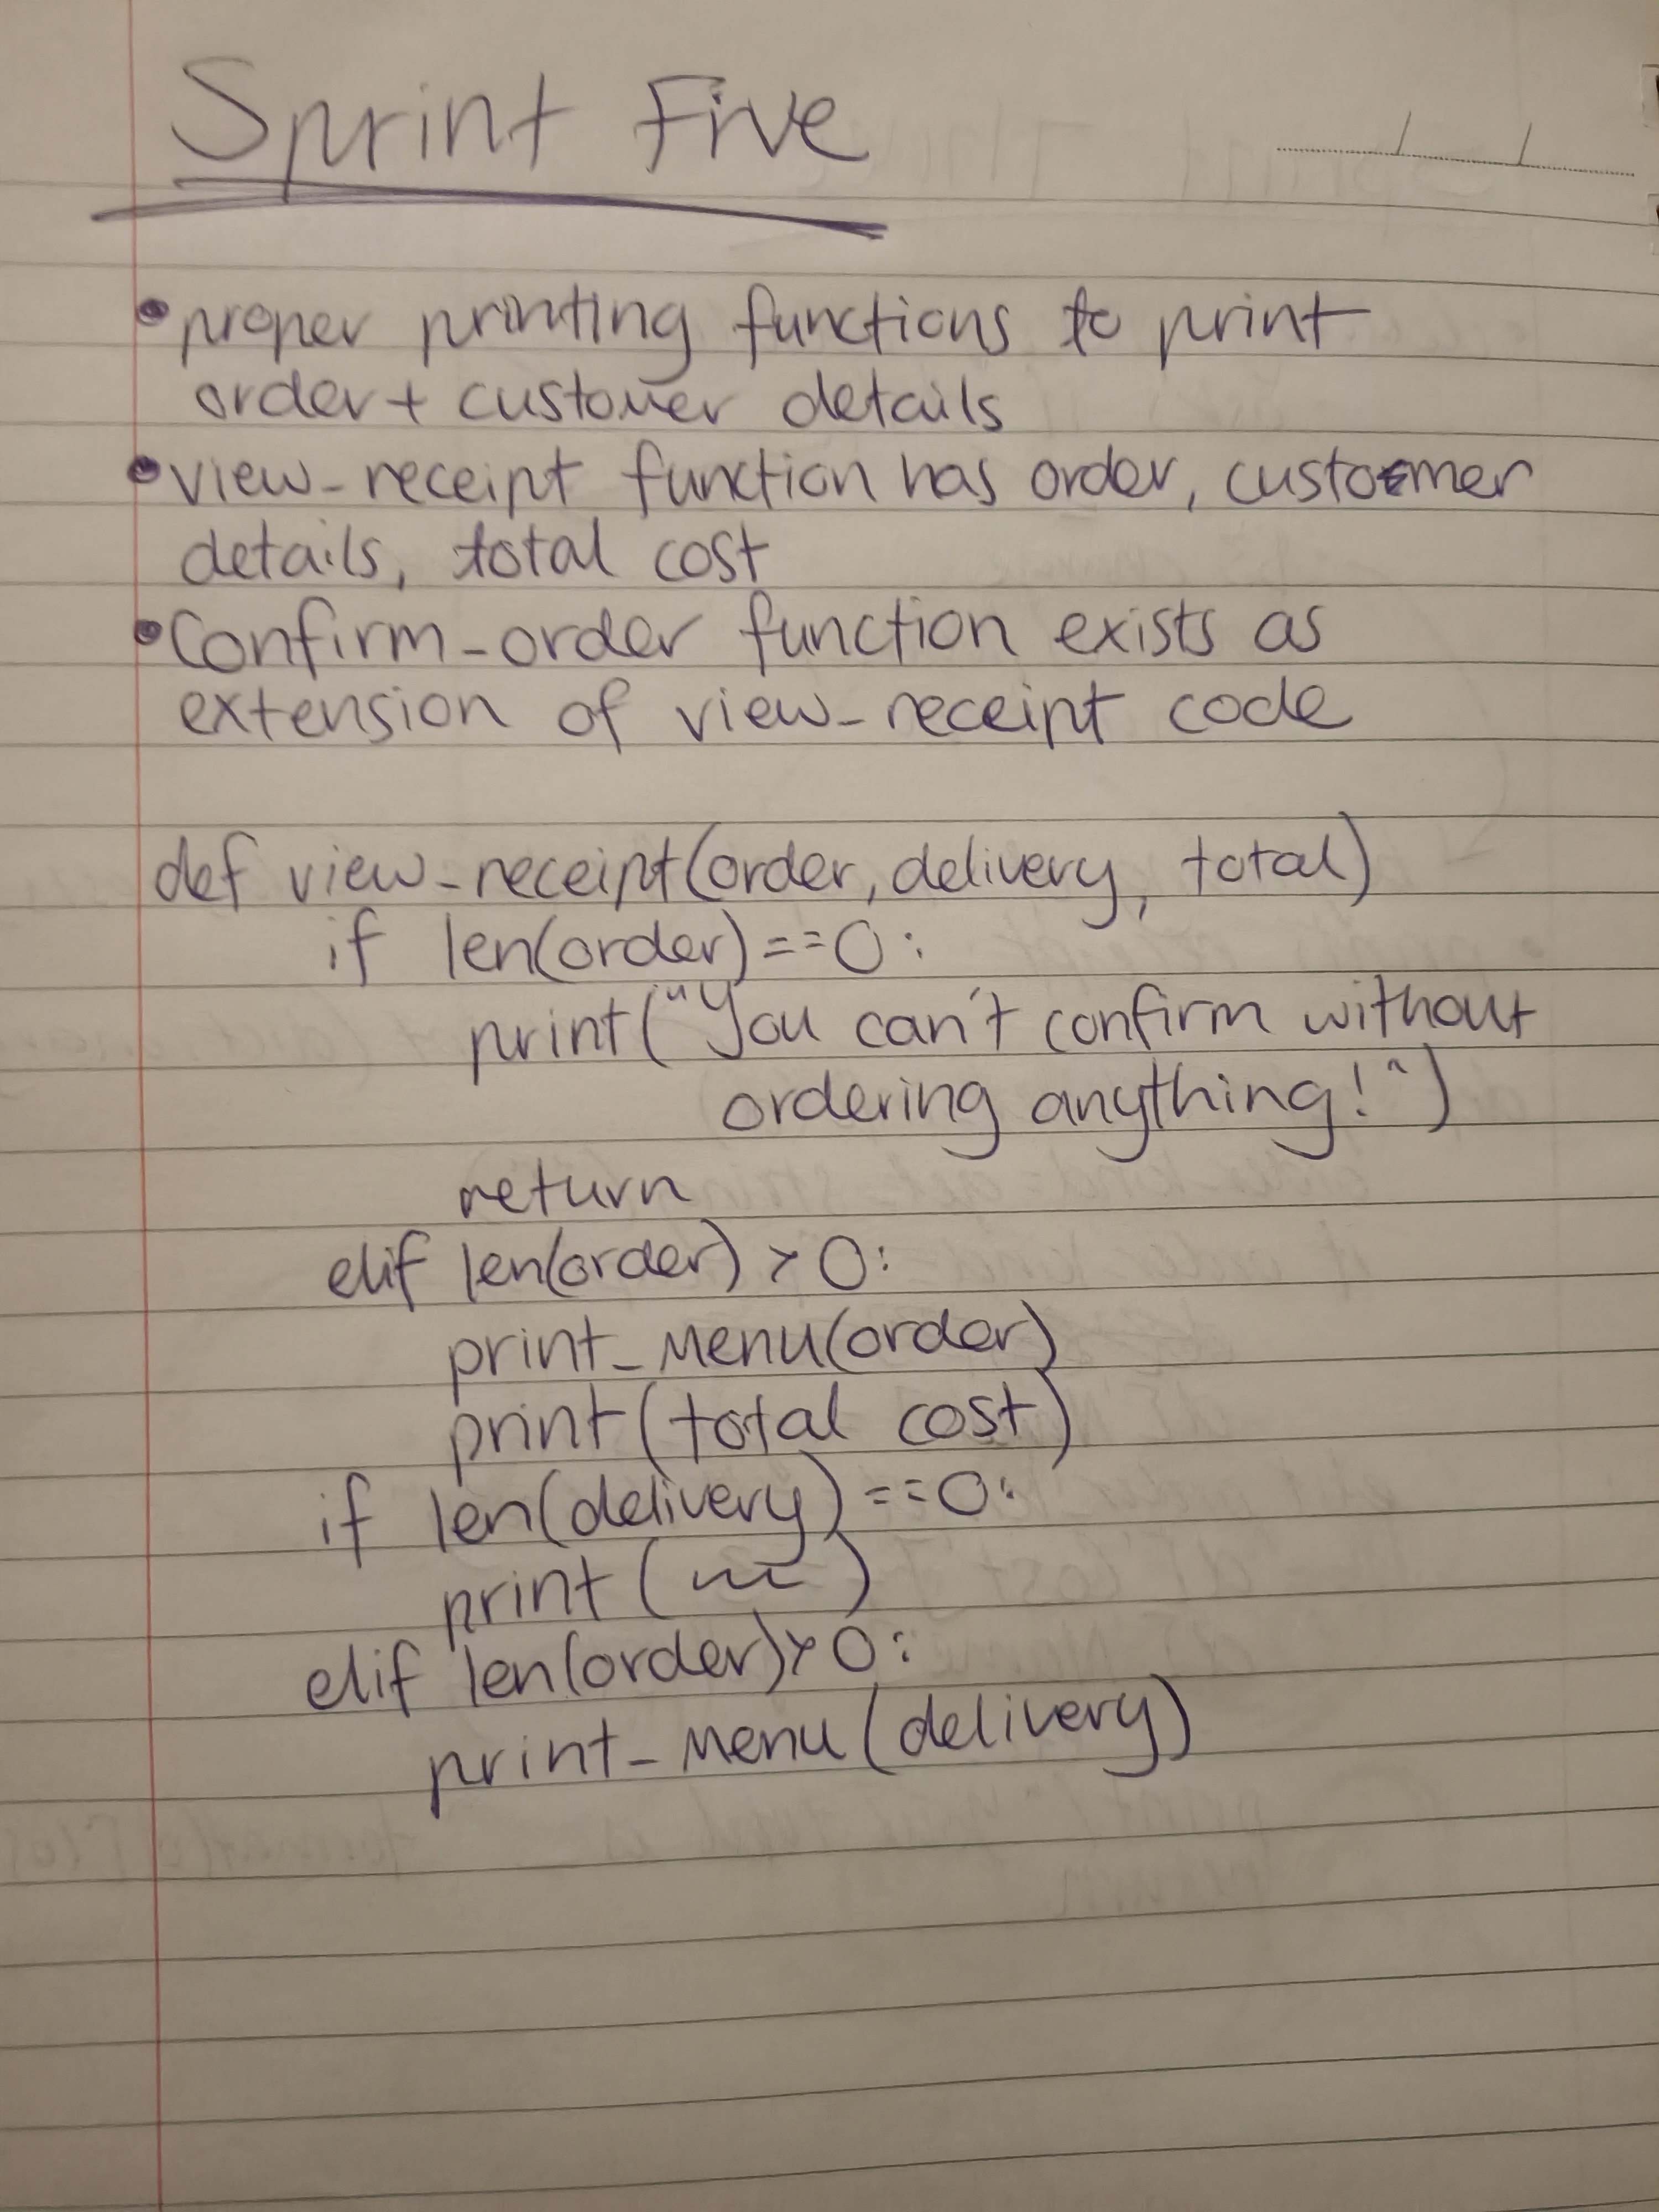 Sprint Five
•proper printing functions to print
order + customer details
•view_receipt function has order, customer
details, total cost
•Confirm_order function exists as
extension of view_receipt code
def view_receipt(order, delivery, total)
if len(order)==0:
print("You can't confirm without
ordering anything!")
return
elif len(order) > 0:
print_menu(order)
print(total cost)
if len(delivery)==0:
print( )
elif len(order)>0:
print_menu(delivery)